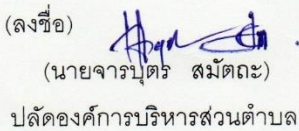 (ลงชื่อ)
(นายจารุบุตร สมัตถะ)
ปลัดองค์การบริหารส่วนตำบล